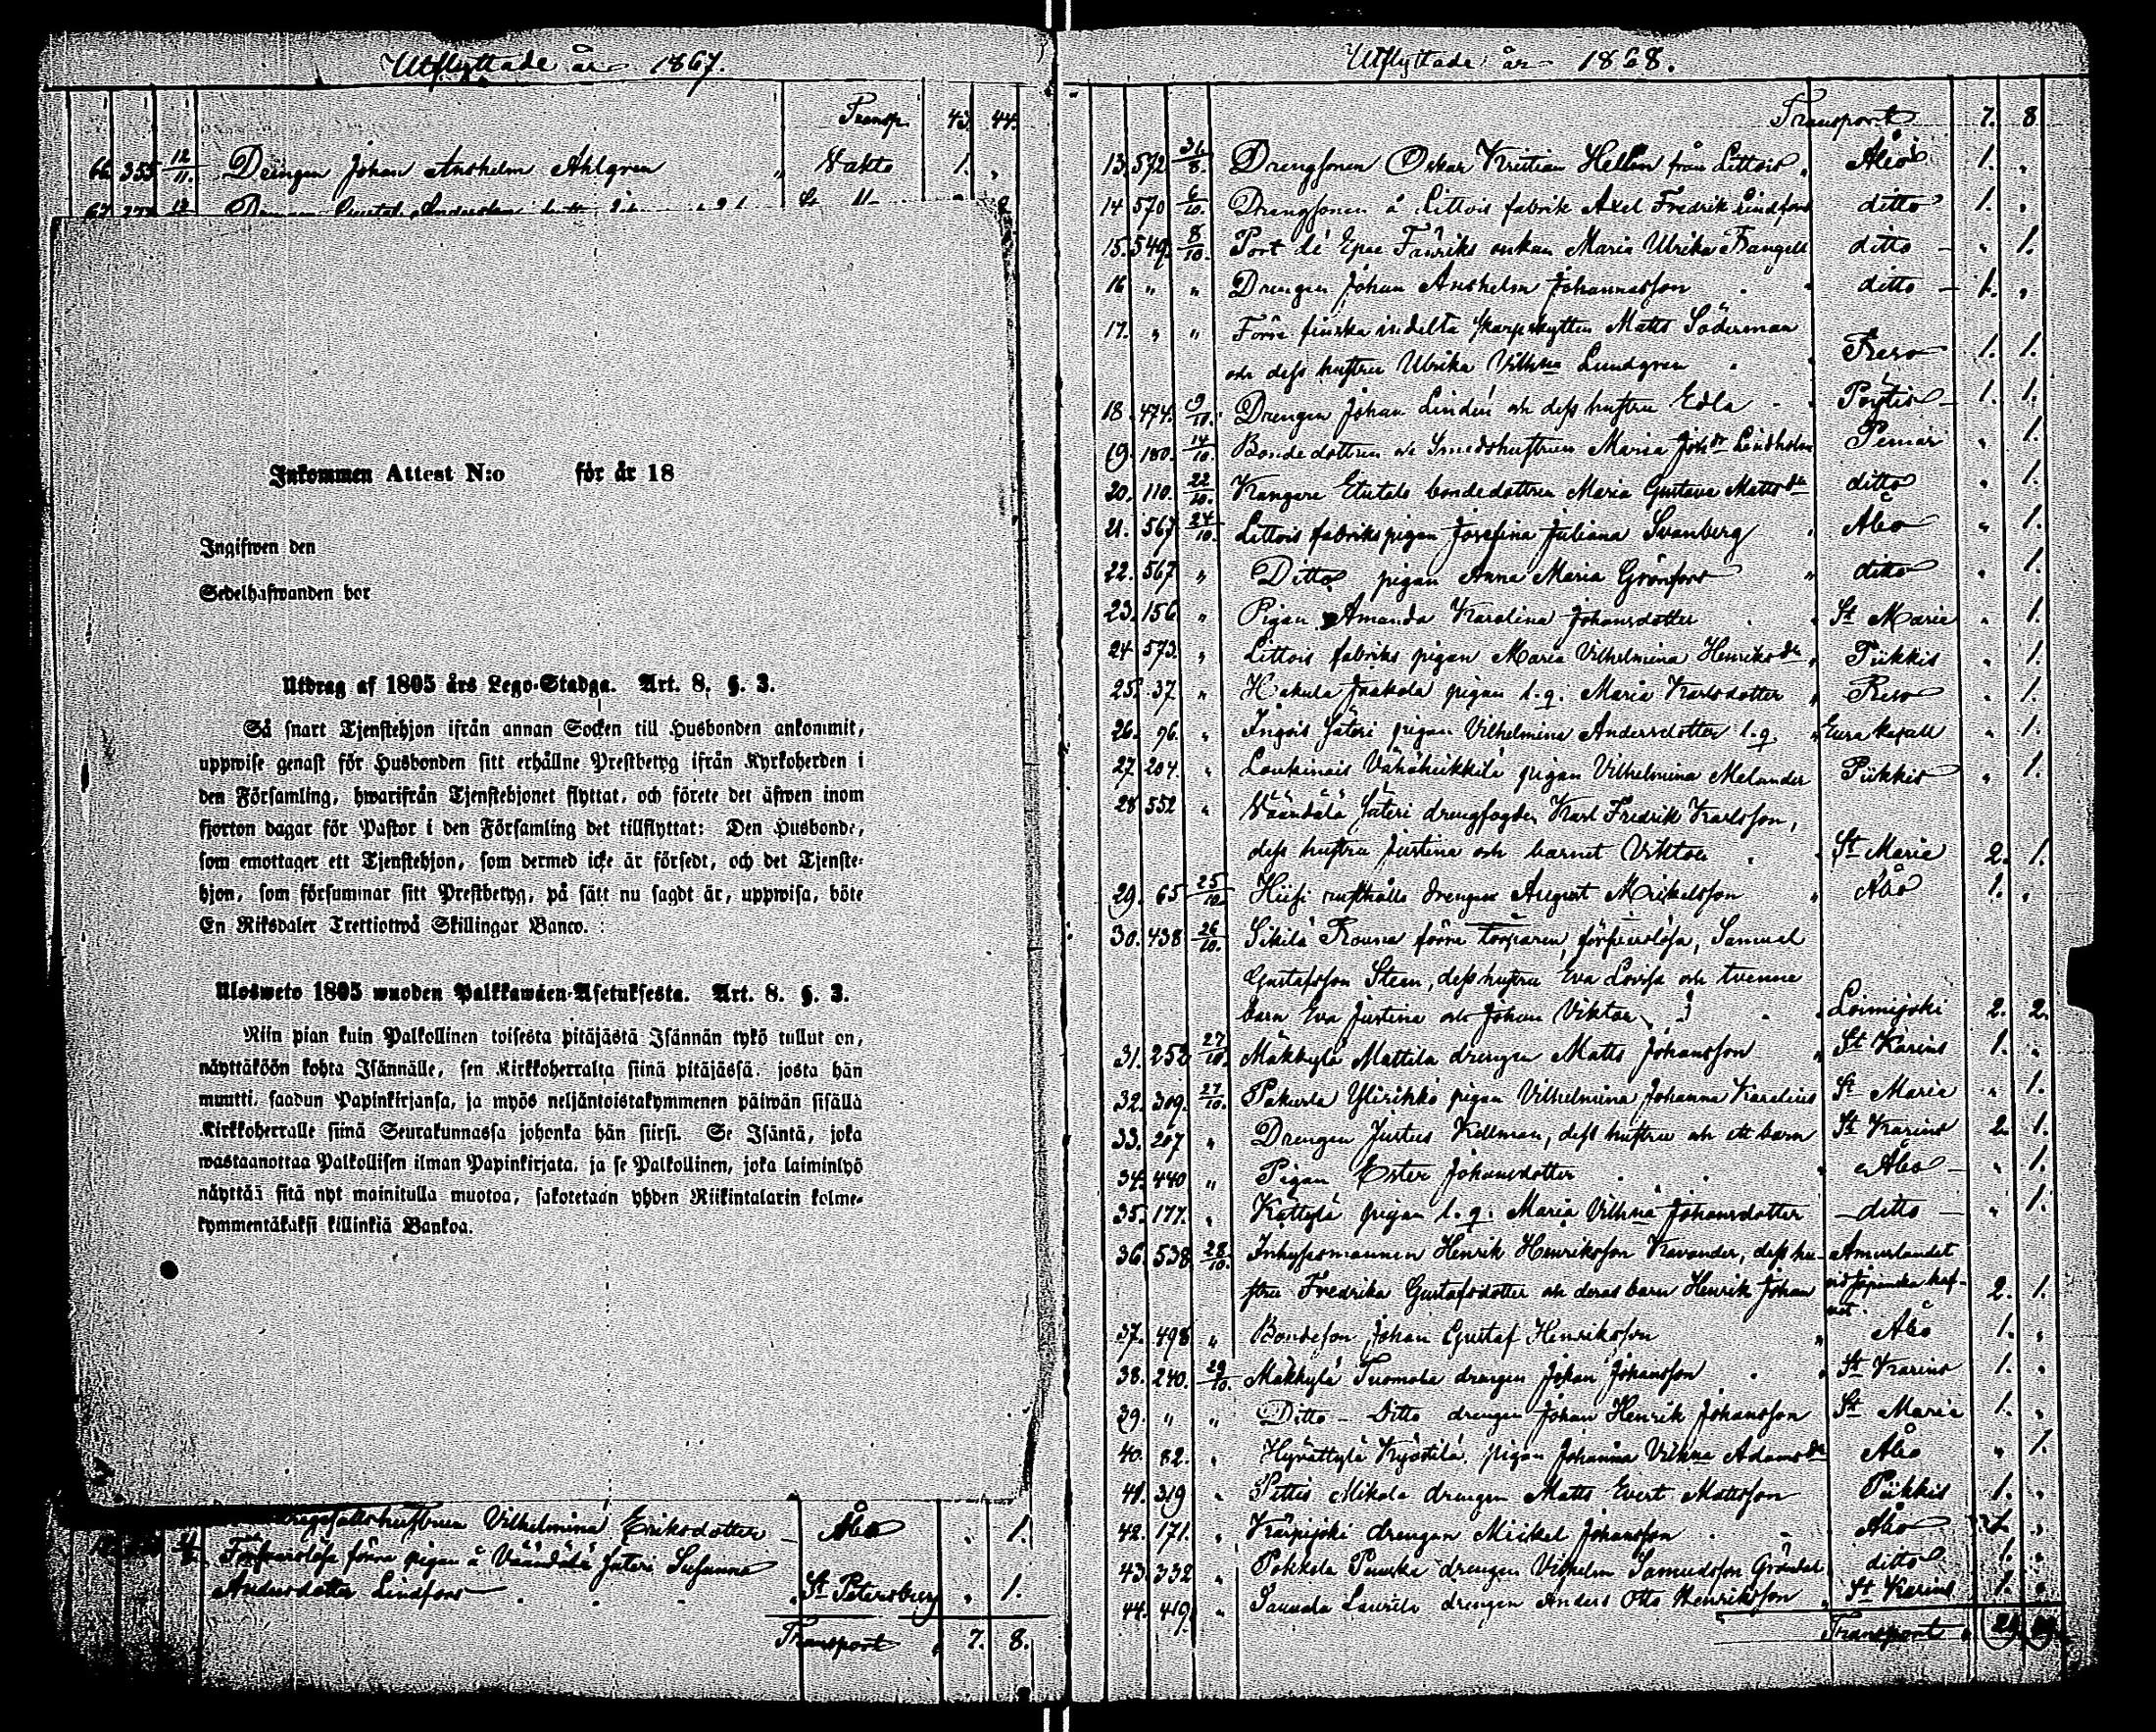 Utflyttade år 1867.
Transp. 43. 44.
66. 355 12/11. Drengen Johan Anshelm Ahlgren " Vakto 1. "
67
Inkommen Attest N:o för år 18
Ingifwen den
Sedelhafwanden bor
Utdrag af 1805 års Lego-Stadga. Art. 8. §. 3.
Så snart Tjenstehjon ifrån annan Socken till Husbonden ankommit,
uppwise genast för Husbonden sitt erhållne Prestbetyg ifrån Kyrkoherden i
den Församling, hwarifrån Tjenstehjonet flyttat, och förete det äfwen inom
fjorton dagar för Pastor i den Församling det tillflyttat: Den Husbonde,
som emottager ett Tjenstehjon, som dermed icke är försedt, och det Tjenste-
hjon, som försummar sitt Prestbetyg, på sätt nu sagdt är, uppwisa, böte
En Riksdaler Trettiotwå Skillingar Banco.
Ulosweto 1805 wuoden Palkkawäen-Asetuksesta. Art. 8. §. 3.
Niin pian kuin Palkollinen toisesta pitäjästä Isännän tykö tullut on,
näyttäköön kohta Isännälle, sen Kirkkoherralta siinä pitäjässä, josta hän
muutti, saadun Papinkirjansa, ja myös neljäntoistakymmenen päiwän sisällä
Kirkkoherralle siinä Seurakunnassa johonka hän siirsi. Se Isäntä, joka
wastaanottaa Palkollisen ilman Papinkirjata, ja se Palkollinen, joka laiminlyö
näyttää sitä nyt mainitulla muotoa, sakotetaan yhden Riikintalarin kolme-
kymmentäkaksi killinkiä Bankoa.
Vilhelmina Eriksdotter Åbo " 1.
Försvarslösa förra pigan å Väändälä Säteri Susanna
Andersdotter Lindfors " St Petersburg " 1.
Transport " 7. 8.
Utflyttade år 1868.
Transport 7. 8
13. 572 36/8. Drengsonen Oskar Kristian Hellen från Littois " Åbo 1. "
14 570 6/10. Drengsonen å Littois fabrik Axel Fredrik Lindfors ditto 1. "
15. 549. 8/10. Port de Epee Fänriks enkan Maria Ulrika Frangell ditto " 1.
16 " " Drengen Johan Anshelm Johannesson ditto 1. "
17. " " Förre finska indelta skarpskytten Matts Söderman
och dess hustru Ulrika Vilhna Lundgren Reso 1. 1.
18. 474. 9/10. Drengen Johan Lindén och dess hustru Edla Pöytis 1. 1.
19. 180. 14/10. Bondedottren och Smedshustrun Maria Johdr Lindholm Pemar " 1.
20. 110. 22/10. Kangare Etutalo bondedottren Maria Gustava Mattsdr ditto " 1.
21. 567 24/10. Littois fabrikspigan Josefina Juliana Svanberg Åbo " 1.
22. 567 " Ditto pigan Anna Maria Grönfors " ditto " 1.
23. 156. " Pigan Amanda Karolina Johansdotter St Marie " 1.
24 573. " Littois fabriks pigan Maria Vilhelmina Henriksdr " Piikkis " 1.
25. 37 " Hakula Jaakola pigan l. q. Maria Karlsdotter " Reso " 1.
26. 96. " Ingois Säteri pigan Vilhelmina Andersdotter l. q. " Eura kapell " 1.
27. 204. " Loukinais Vähäheikkilä pigan Vilhelmina Melander Piikkis " 1.
28 552 " Väändälä Säteri drengfogden Karl Fredrik Karlsson,
dess hustru Justina och barnet Viktor St Marie 2. 1.
29. 65 25/10 Hiisi rusthålls drengen August Mickelsson " Åbo 1. "
30. 438 26/10. Sikilä Rouna förre torparen, försvarslösa, Samuel
Gustafsson Steen, dess hustru Eva Lovisa och tvenne
barn Eva Justina och Johan Viktor Loimijoki 2. 2.
31. 252 27/10. Mäkkylä Mattila drengen Matts Johansson " St Karins 1. "
32. 309. 27/10. Pakurla Ylirikko pigan Vilhelmina Johanna Karelius St Maria " 1.
33. 207 " Drengen Justus Kellman, dess hustru och ett barn St Karins 2. 1.
34. 440 " Pigan Ester Johansdotter " Åbo " 1.
35. 177. " Kättylä pigan l. q. Maria Vilhna Johansdotter ditto " 1.
36. 538 28/10. Inhysesmannen Henrik Henriksson Kavander, dess hu- Amurlandet
stru Fredrika Gustafsdotter och deras barn Henrik Johan vid Japanska haf-
vet. 2. 1.
37. 498 " Bondeson Johan Gustaf Henriksson " Åbo 1. "
38. 240. 29/10. Mäkkylä Tuomola drengen Johan Johansson " St Karins 1. "
39. " " Ditto - Ditto drengen Johan Henrik Johansson St Marie 1. "
40. 82. " Hyvättylä Kyöstilä pigan Johanna Vilhna Adamsdr Åbo " 1.
41. 319 " Pettis Mikola drengen Matts Evert Mattsson Piikkis 1. "
42. 171. " Karpijoki drengen Mickel Johansson Åbo 1. "
43. 332 " Pohkola drengen Vilhelm Samuelsson ditto 1. "
44. 419. " Sauvala Laurila drengen Anders Otto Henriksson " St Karins 1. "
Transport "